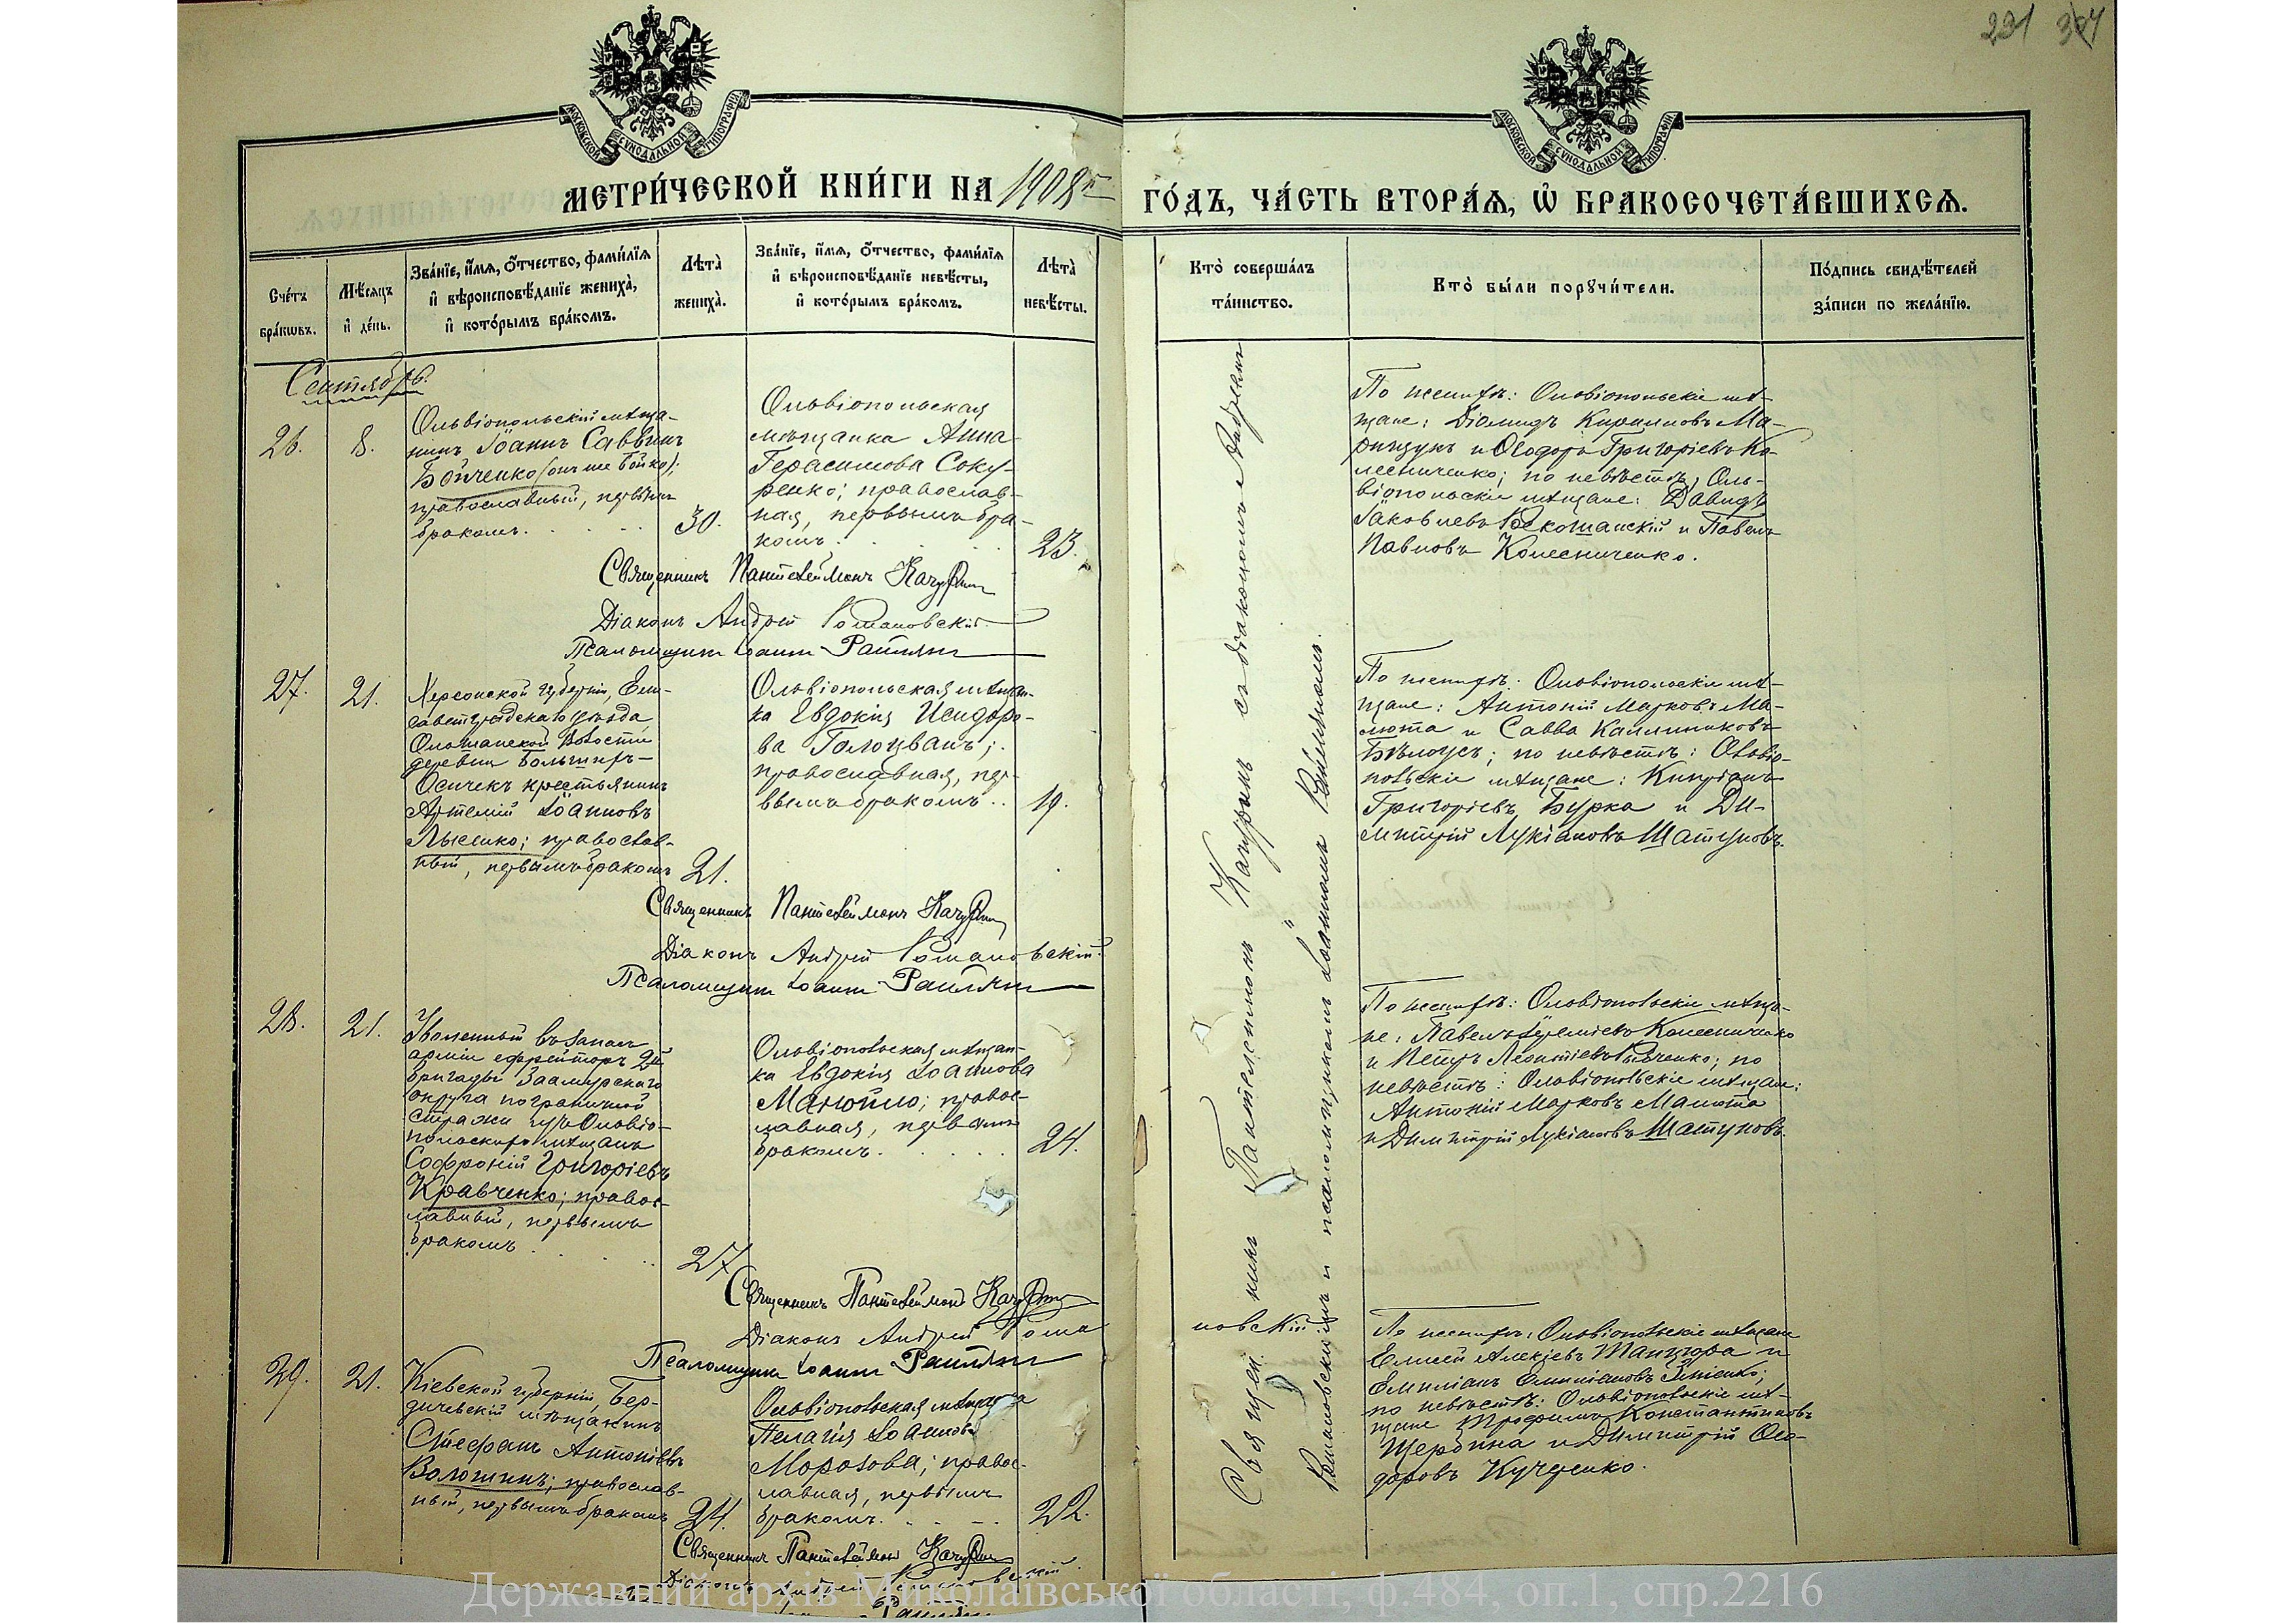 231 324
МОСКОВСКОЙ СѴНОДАЛЬНОЙ ТИПОГРАФІИ
МОСКОВСКОЙ СѴНОДАЛЬНОЙ ТИПОГРАФІИ
МЕТРИ́ЧЕСКОЙ КНИ́ГИ НА 1908 й ГО́ДЪ, ЧА́СТЬ ВТОРА́Ѧ, Ѽ БРАКОСОЧЕТА́ВШИХСѦ.
Сче́тъ бра́кѡвъ.
Мѣ́сѧцъ и҆ де́нь.
Зва́нїе, и҆́мѧ, о҆́тчество, фами́лїѧ и҆ вѣроисповѣ́данїе жениха̀, и҆ кото́рымъ бра́комъ.
Лѣта̀ жениха̀.
Зва́нїе, и҆́мѧ, о҆́тчество, фами́лїѧ и҆ вѣроисповѣ́данїе невѣ́сты, и҆ кото́рымъ бра́комъ.
Лѣта̀ невѣ́сты.
Кто̀ соверша́лъ та́инство.
Кто̀ бы́ли порꙋчи́тели.
По́дпись свидѣ́телей за́писи по жела́нїю.
Сентябрь.
26.
8.
Ольвіопольскій мѣща-
нинъ Іоаннъ Саввинъ
Бойченко (онъ же Бойко);
православный, первымъ
бракомъ.
30.
Ольвіопольская
мѣщанка Анна
Герасимова Соку-
ренко; православ-
ная, первымъ бра-
комъ.
23.
По женихѣ: Ольвіопольскіе мѣ-
щане: Діомидъ Кирилловъ Ма-
рищукъ и Ѳеодоръ Григорьевъ Ко-
лесниченко; по невѣстѣ, Оль-
віопольскіе мѣщане: Давидъ
Іаковлевъ и Павелъ
Павловъ Колесниченко.
Священникъ Пантелеймонъ Качуринъ
Діаконъ Андрей Романовскій
Псаломщикъ Іоаннъ
27.
21.
Херсонской губерніи, Ели-
саветградскаго уѣзда,
Ольшанской волости
деревни Большихъ-
Осичекъ крестьянинъ
Артемій Іоанновъ
Лысенко; православ-
ный, первымъ бракомъ
21.
Ольвіопольская мѣщан-
ка Евдокія Исидоро-
ва Голоцванъ;
православная, пер-
вымъ бракомъ..
19.
По женихѣ: Ольвіопольскіе мѣ-
щане: Антоній Марковъ Ма-
люта и Савва Каллиниковъ
Бѣлоусъ; по невѣстѣ: Ольвіо-
польскіе мѣщане: Кипріанъ
Григорьевъ Бурка и Ди-
митрій Лукіановъ Шатуновъ.
Священникъ Пантелеймонъ Качуринъ
Діаконъ Андрей Романовскій
Псаломщикъ Іоаннъ
28.
21.
Уволенный въ запасъ
арміи ефрейторъ 2й
бригады Заамурскаго
округа пограничной
стражи изъ Ольвіо-
польскихъ мѣщанъ
Софроній Григорьевъ
Кравченко; правос-
лавный, первымъ
бракомъ
27
Ольвіопольская мѣщан-
ка Евдокія Іоаннова
Манойло; правос-
лавная, первымъ
бракомъ.
24.
По женихѣ: Ольвіопольскіе мѣща-
не: Павелъ Колесниченко
и Петръ Леонтіевъ; по
невѣстѣ: Ольвіопольскіе мѣщане:
Антоній Марковъ Малюта
и Димитрій Лукіановъ Шатуновъ.
Священникъ Пантелеймонъ Качуринъ
Діаконъ Андрей Рома
новскій
Псаломщикъ Іоаннъ
29.
21.
Кіевской губерніи, Бер-
дичевскій мѣщанинъ
Стефанъ Антоніевъ
Волошинъ; православ-
ный, первымъ бракомъ
24.
Ольвіопольская мѣщанка
Пелагія Іоаннова
Морозова; правос-
лавная, первымъ
бракомъ.
22.
По женихѣ: Ольвіопольскіе мѣщане
Елисей Алексіевъ и
Емиліанъ Емиліановъ
по невѣстѣ: Ольвіопольскіе мѣ-
щане Трофимъ Константиновъ
Щербина и Димитрій Ѳео-
доровъ Кучеренко.
Священникъ Пантелеймонъ Качуринъ
Діаконъ Андрей Романовскій
Священникъ Пантелеимонъ Качуринъ съ діакономъ Андреемъ
Романовскимъ и псаломщикомъ Іоанномъ
Державний архів Миколаївської області, ф.484, оп.1, спр.2216